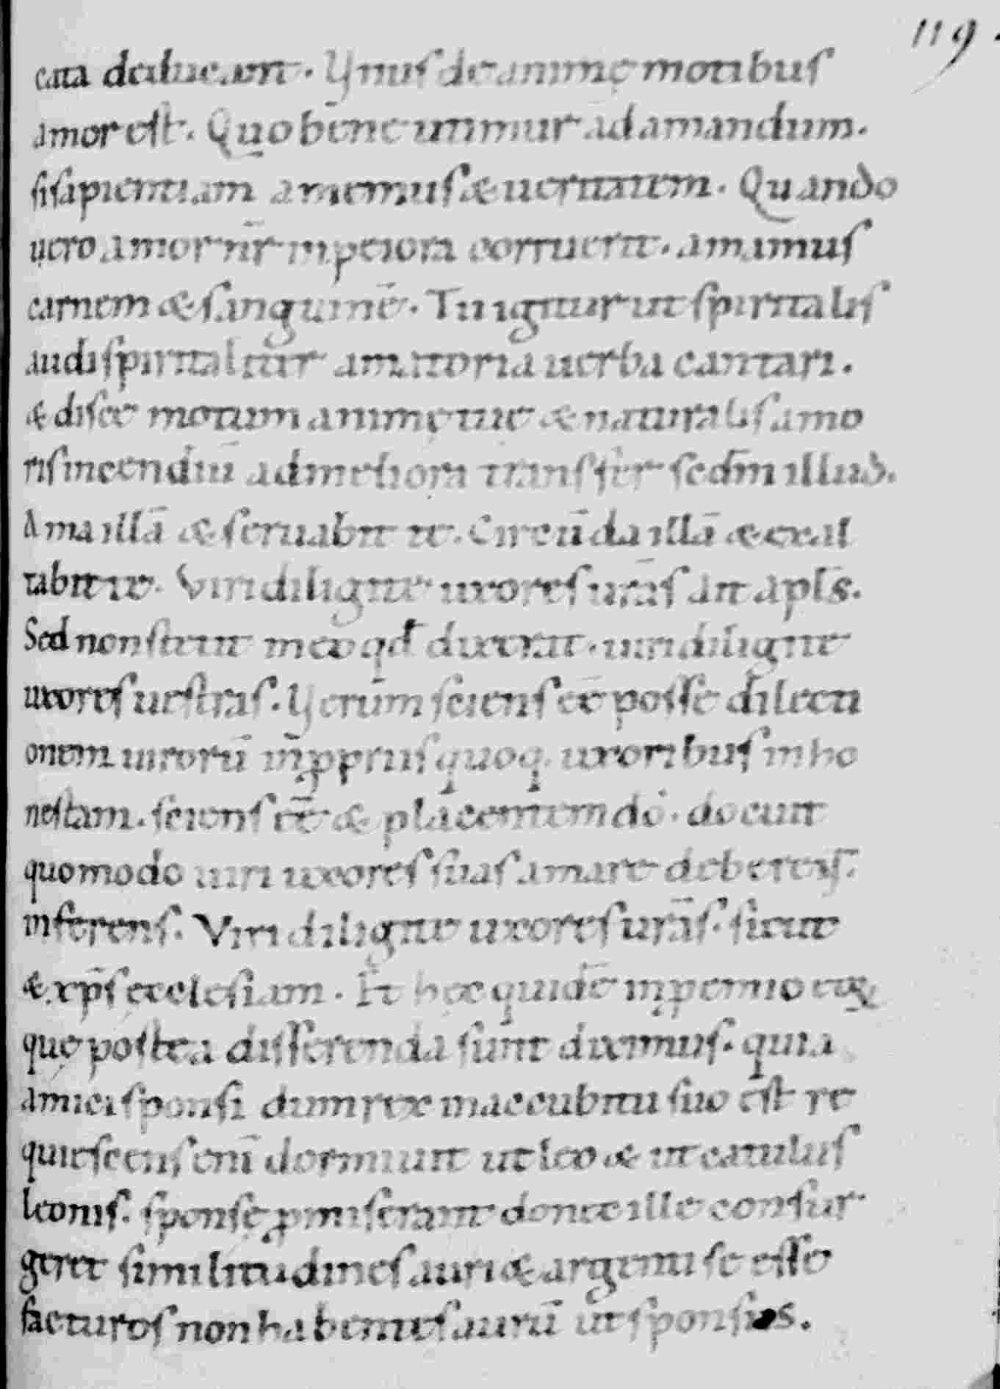 119.
cata deducant. Unus de animę motibus
amor est. Quo bene utimur ad amandum.
si sapientiam amemus & ueritatem. Quando
uero amor nr̄ in peiora corruerit. amamus
carnem & sanguinē. Tu igitur ut spiritalis
audi spiritalitˀ amatoria uerba cantari.
& disce motum animę tuę & naturalis amo
ris incendiū ad meliora transferr sedm̄ illud.
Ama illā & seruabit te. Circūda illā & exal
tabit te. Viri diligite uxores urās ait apls̄.
Sed non stetit in eo qđ dixerat. uiri diligite
uxores uestras. Uerum sciens eē posse dilecti
onem uirorū in p̄priis quoq. uxoribus inho
nestam. sciens eē & placentem dō. docuit
quomodo uiri uxores suas amare deberent.
inferens. Viri diligite uxores urās. sicut
& xp̄s ecclesiam. Et hęc quidē in p̄
quę postea differenda sunt diximus. quia
amici sponsi dum rex in accubitu suo est re
quiescens enī dormiuit ut leo & ut catulus
leonis. sponsę p̄miserant donec ille consur
geret similitudines auri & argenti se esse
facturos non habentes aurū ut sponsus.